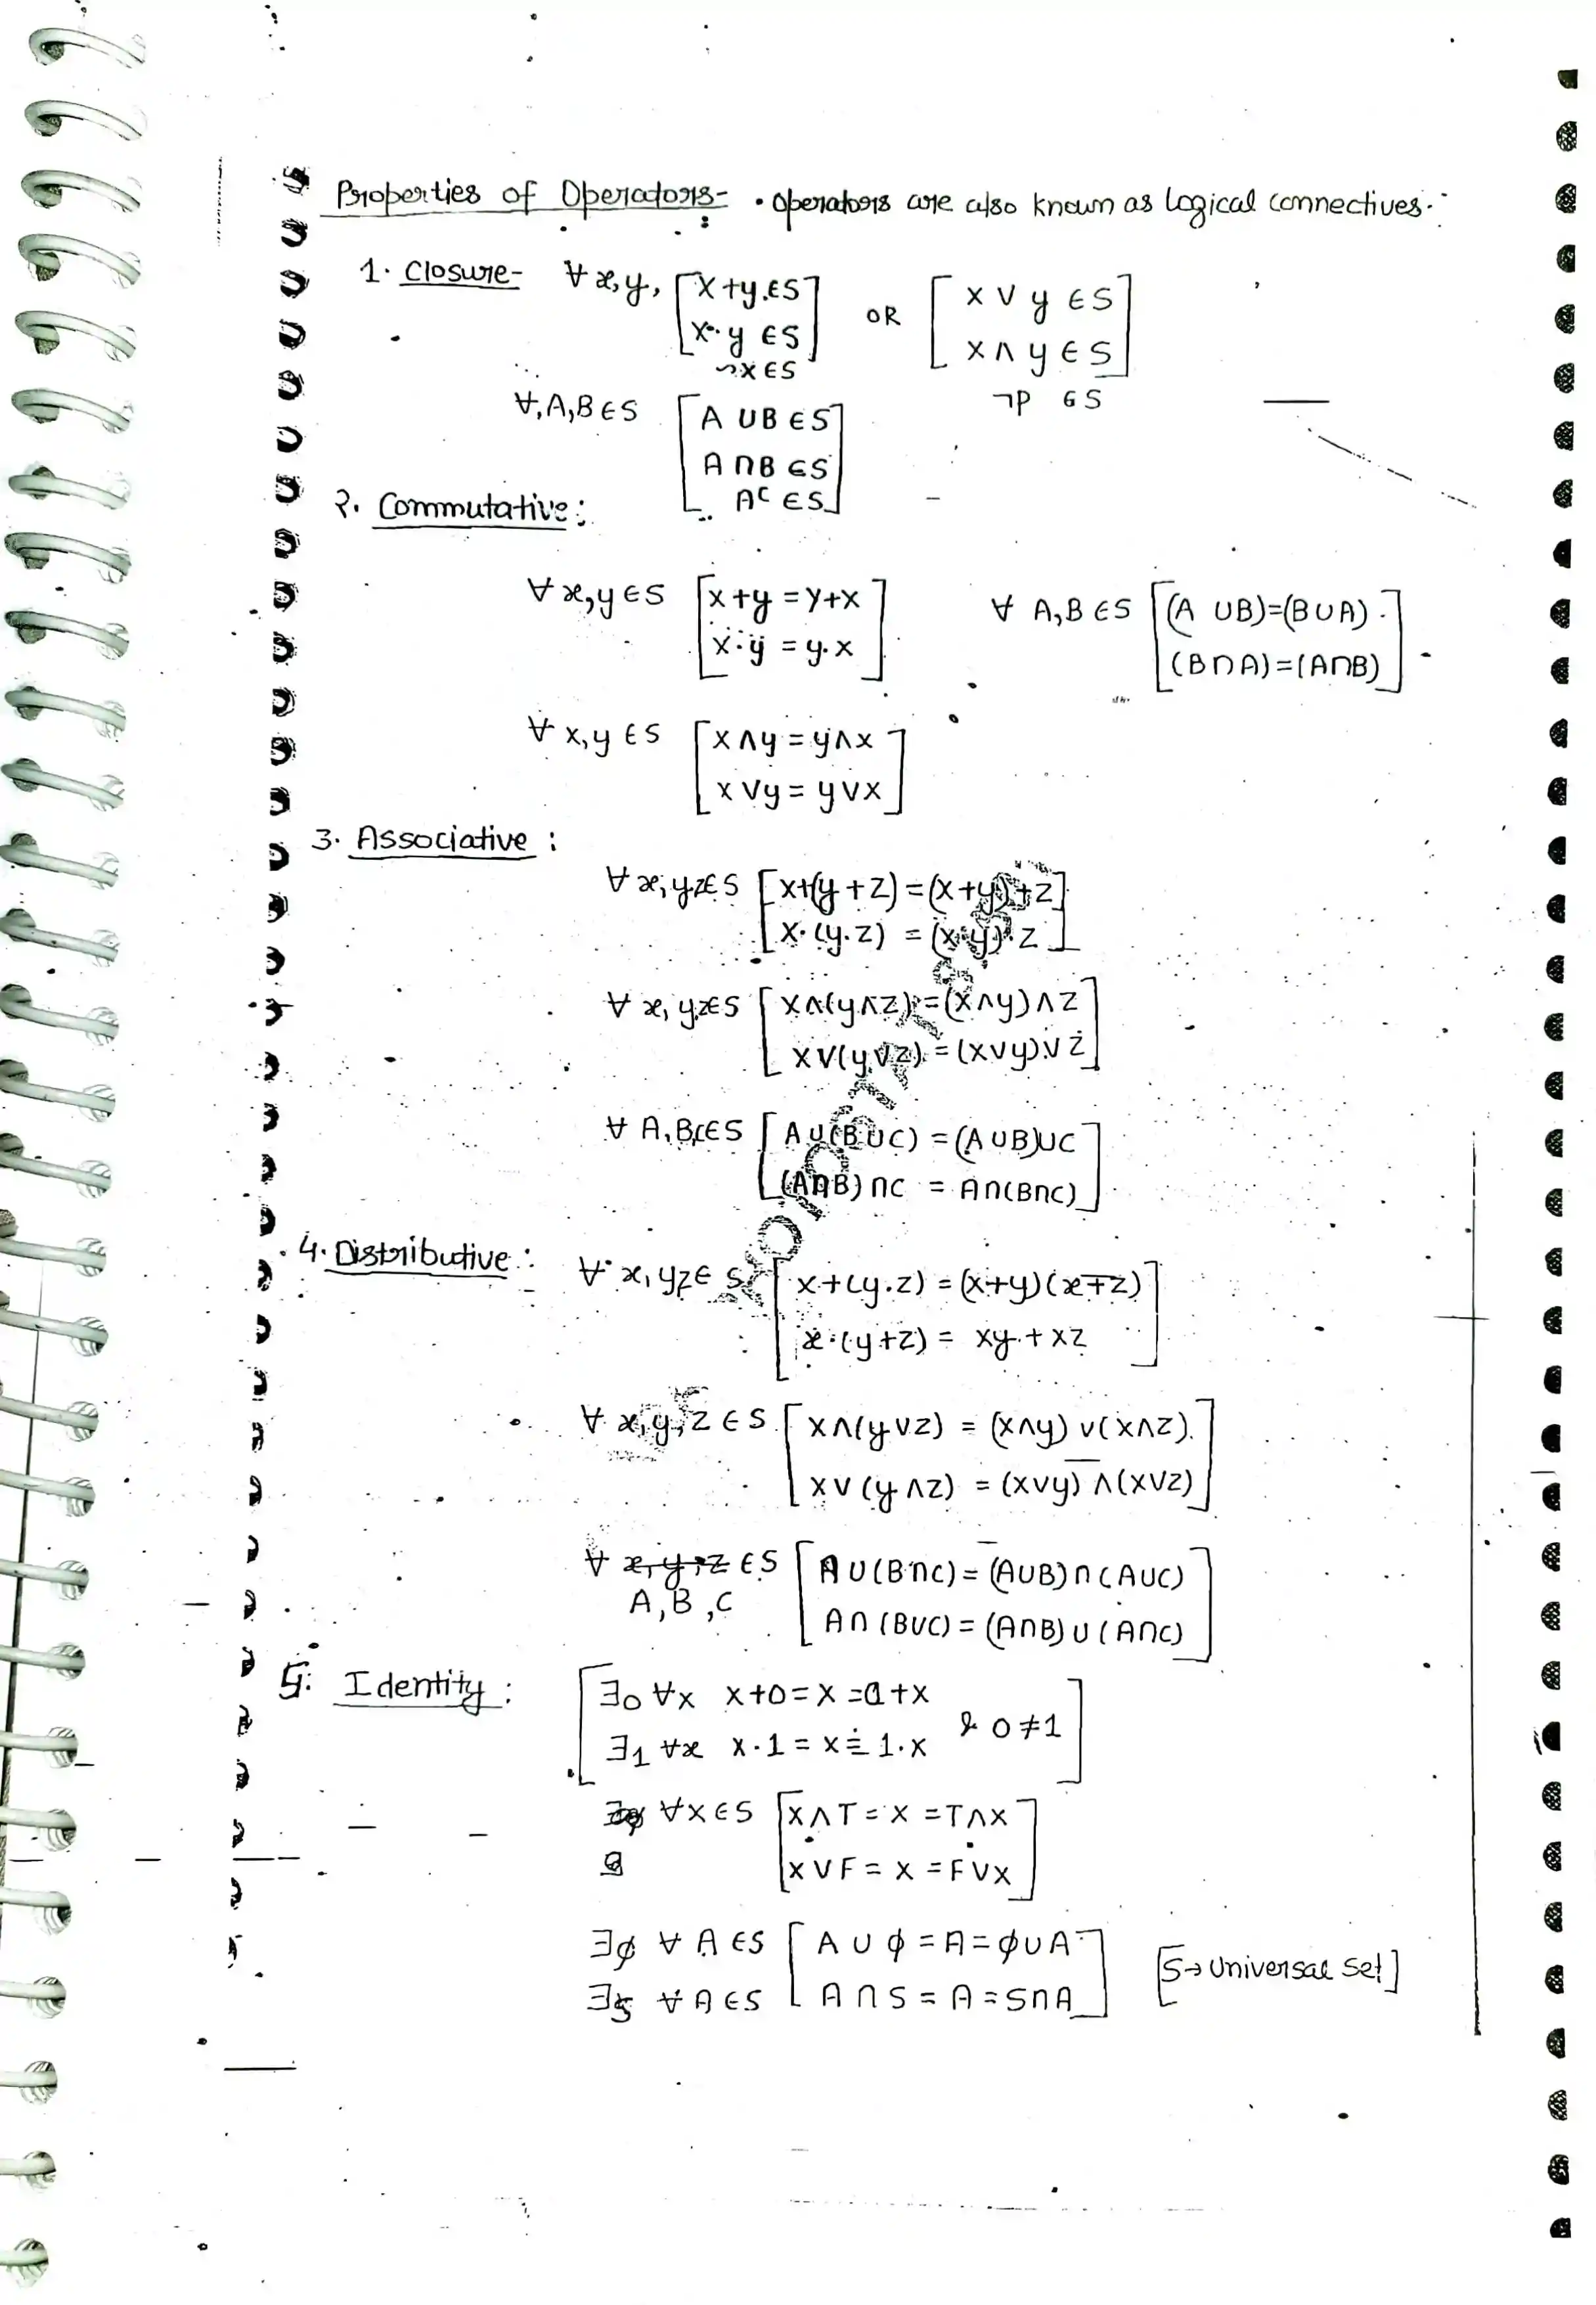 Properties of Operators- • Operators are also known as Logical connectives.
1. Closure- ∀ x, y, [x + y ∈ S OR [x ∨ y ∈ S]
x · y ∈ S] x ∧ y ∈ S]
¬x ∈ S
¬P ∈ S
∀, A, B ∈ S [A ∪ B ∈ S]
A ∩ B ∈ S
Aᶜ ∈ S]
2. Commutative :
∀ x, y ∈ S [x + y = y + x] ∀ A, B ∈ S [(A ∪ B) = (B ∪ A)]
x · y = y · x] (B ∩ A) = (A ∩ B)]
∀ x, y ∈ S [x ∧ y = y ∧ x]
x ∨ y = y ∨ x]
3. Associative :
∀ x, y, z ∈ S [x + (y + z) = (x + y) + z]
x · (y · z) = (x · y) · z]
∀ x, y, z ∈ S [x ∧ (y ∧ z) = (x ∧ y) ∧ z]
x ∨ (y ∨ z) = (x ∨ y) ∨ z]
∀ A, B, C ∈ S [A ∪ (B ∪ C) = (A ∪ B) ∪ C]
(A ∩ B) ∩ C = A ∩ (B ∩ C)]
4. Distributive : ∀ x, y, z ∈ S [x + (y · z) = (x + y) (x + z)]
x · (y + z) = xy + xz]
∀ x, y, z ∈ S [x ∧ (y ∨ z) = (x ∧ y) ∨ (x ∧ z)]
x ∨ (y ∧ z) = (x ∨ y) ∧ (x ∨ z)]
∀ x, y, z ∈ S [A ∪ (B ∩ C) = (A ∪ B) ∩ (A ∪ C)]
A, B, C A ∩ (B ∪ C) = (A ∩ B) ∪ (A ∩ C)]
5. Identity : [∃0 ∀x x + 0 = x = 0 + x
& 0 ≠ 1]
∃1 ∀x x · 1 = x = 1 · x
∀x ∈ S [x ∧ T = x = T ∧ x]
x ∨ F = x = F ∨ x]
∃φ ∀ A ∈ S [A ∪ φ = A = φ ∪ A] [S → Universal Set]
∃S ∀ A ∈ S A ∩ S = A = S ∩ A]